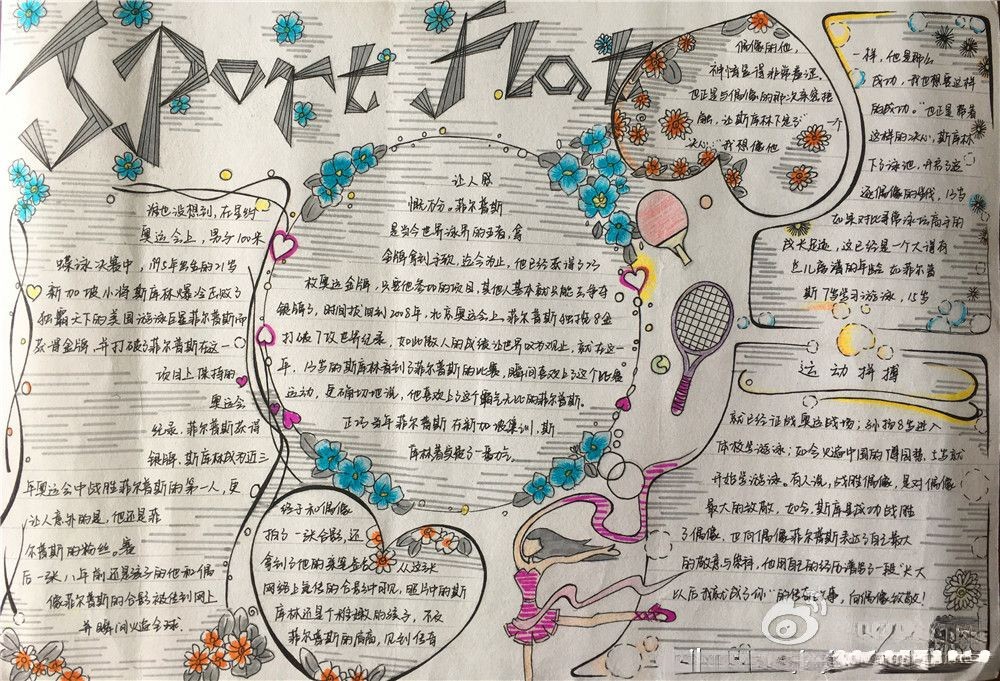 Sport flat
谁也没想到,在里约
奥运会上,男子100米
蝶泳决赛中,1995年出生的21岁
新加坡小将斯库林爆冷击败了
独霸天下的美国游泳巨星菲尔普斯而
获得金牌,并打破了菲尔普斯在这一
项目上保持的
奥运会
纪录.菲尔普斯获得
银牌.斯库林成为近三
年奥运会中战胜菲尔普斯的第一人,更
让人意外的是,他还是菲
尔普斯的粉丝。赛
后一张八年前还是孩子的他和偶
像菲尔普斯的合影被传到网上
并瞬间火遍全球
让人感
慨万分。菲尔普斯
是当今世界泳界的王者,拿
金牌拿到手软,迄今为止,他已经获得了23
枚奥运金牌,只要他参加的项目,其他人基本就只能去争夺
银牌了,时间拨回到2008年,北京奥运会上,菲尔普斯独揽8金
打破了7项世界纪录,如此骇人的成绩让世界叹为观止,就在这一
年,13岁的斯库林看到了菲尔普斯的比赛,瞬间喜欢上了这个比赛
运动,更确切地说,他喜欢上了这个霸气无比的菲尔普斯。
正巧当年菲尔普斯在新加坡集训,斯
库林着实费了一番力气,
终于和偶像
拍了一张合影,还
拿到了他的亲笔签名,从这张
网络上疯传的合影中可见,照片中的斯
库林还是个稚嫩的孩子,不及
菲尔普斯的肩高,见到传奇
偶像的他,
神情显得非常着迷.
也正是与偶像的那次亲密接
触,让斯库林下定了一个
决心:"我想像他
一样,他是那么
成功,我也想要这样
的成功。"也正是带着
这样的决心,斯库林
下了泳池,开启了追
逐偶像的路线,13岁
在某对比寻常泳坛高手的
成长足迹,这已经是一个大得有
点儿离谱的年龄 在菲尔普
斯7岁学习游泳,15岁
运动拼搏
就已经征战奥运战场;孙杨8岁进入
体校学游泳;如今火遍中国的傅园慧,5岁就
开始学游泳。有人说,战胜偶像,是对偶像
最大的致敬,如今,斯库林成功战胜
了偶像,也向偶像菲尔普斯表达了自己最大
的敬意与崇拜,他用自己的经历谱写了一段"长大
以后我就成了你"的传奇故事,向偶像致敬!